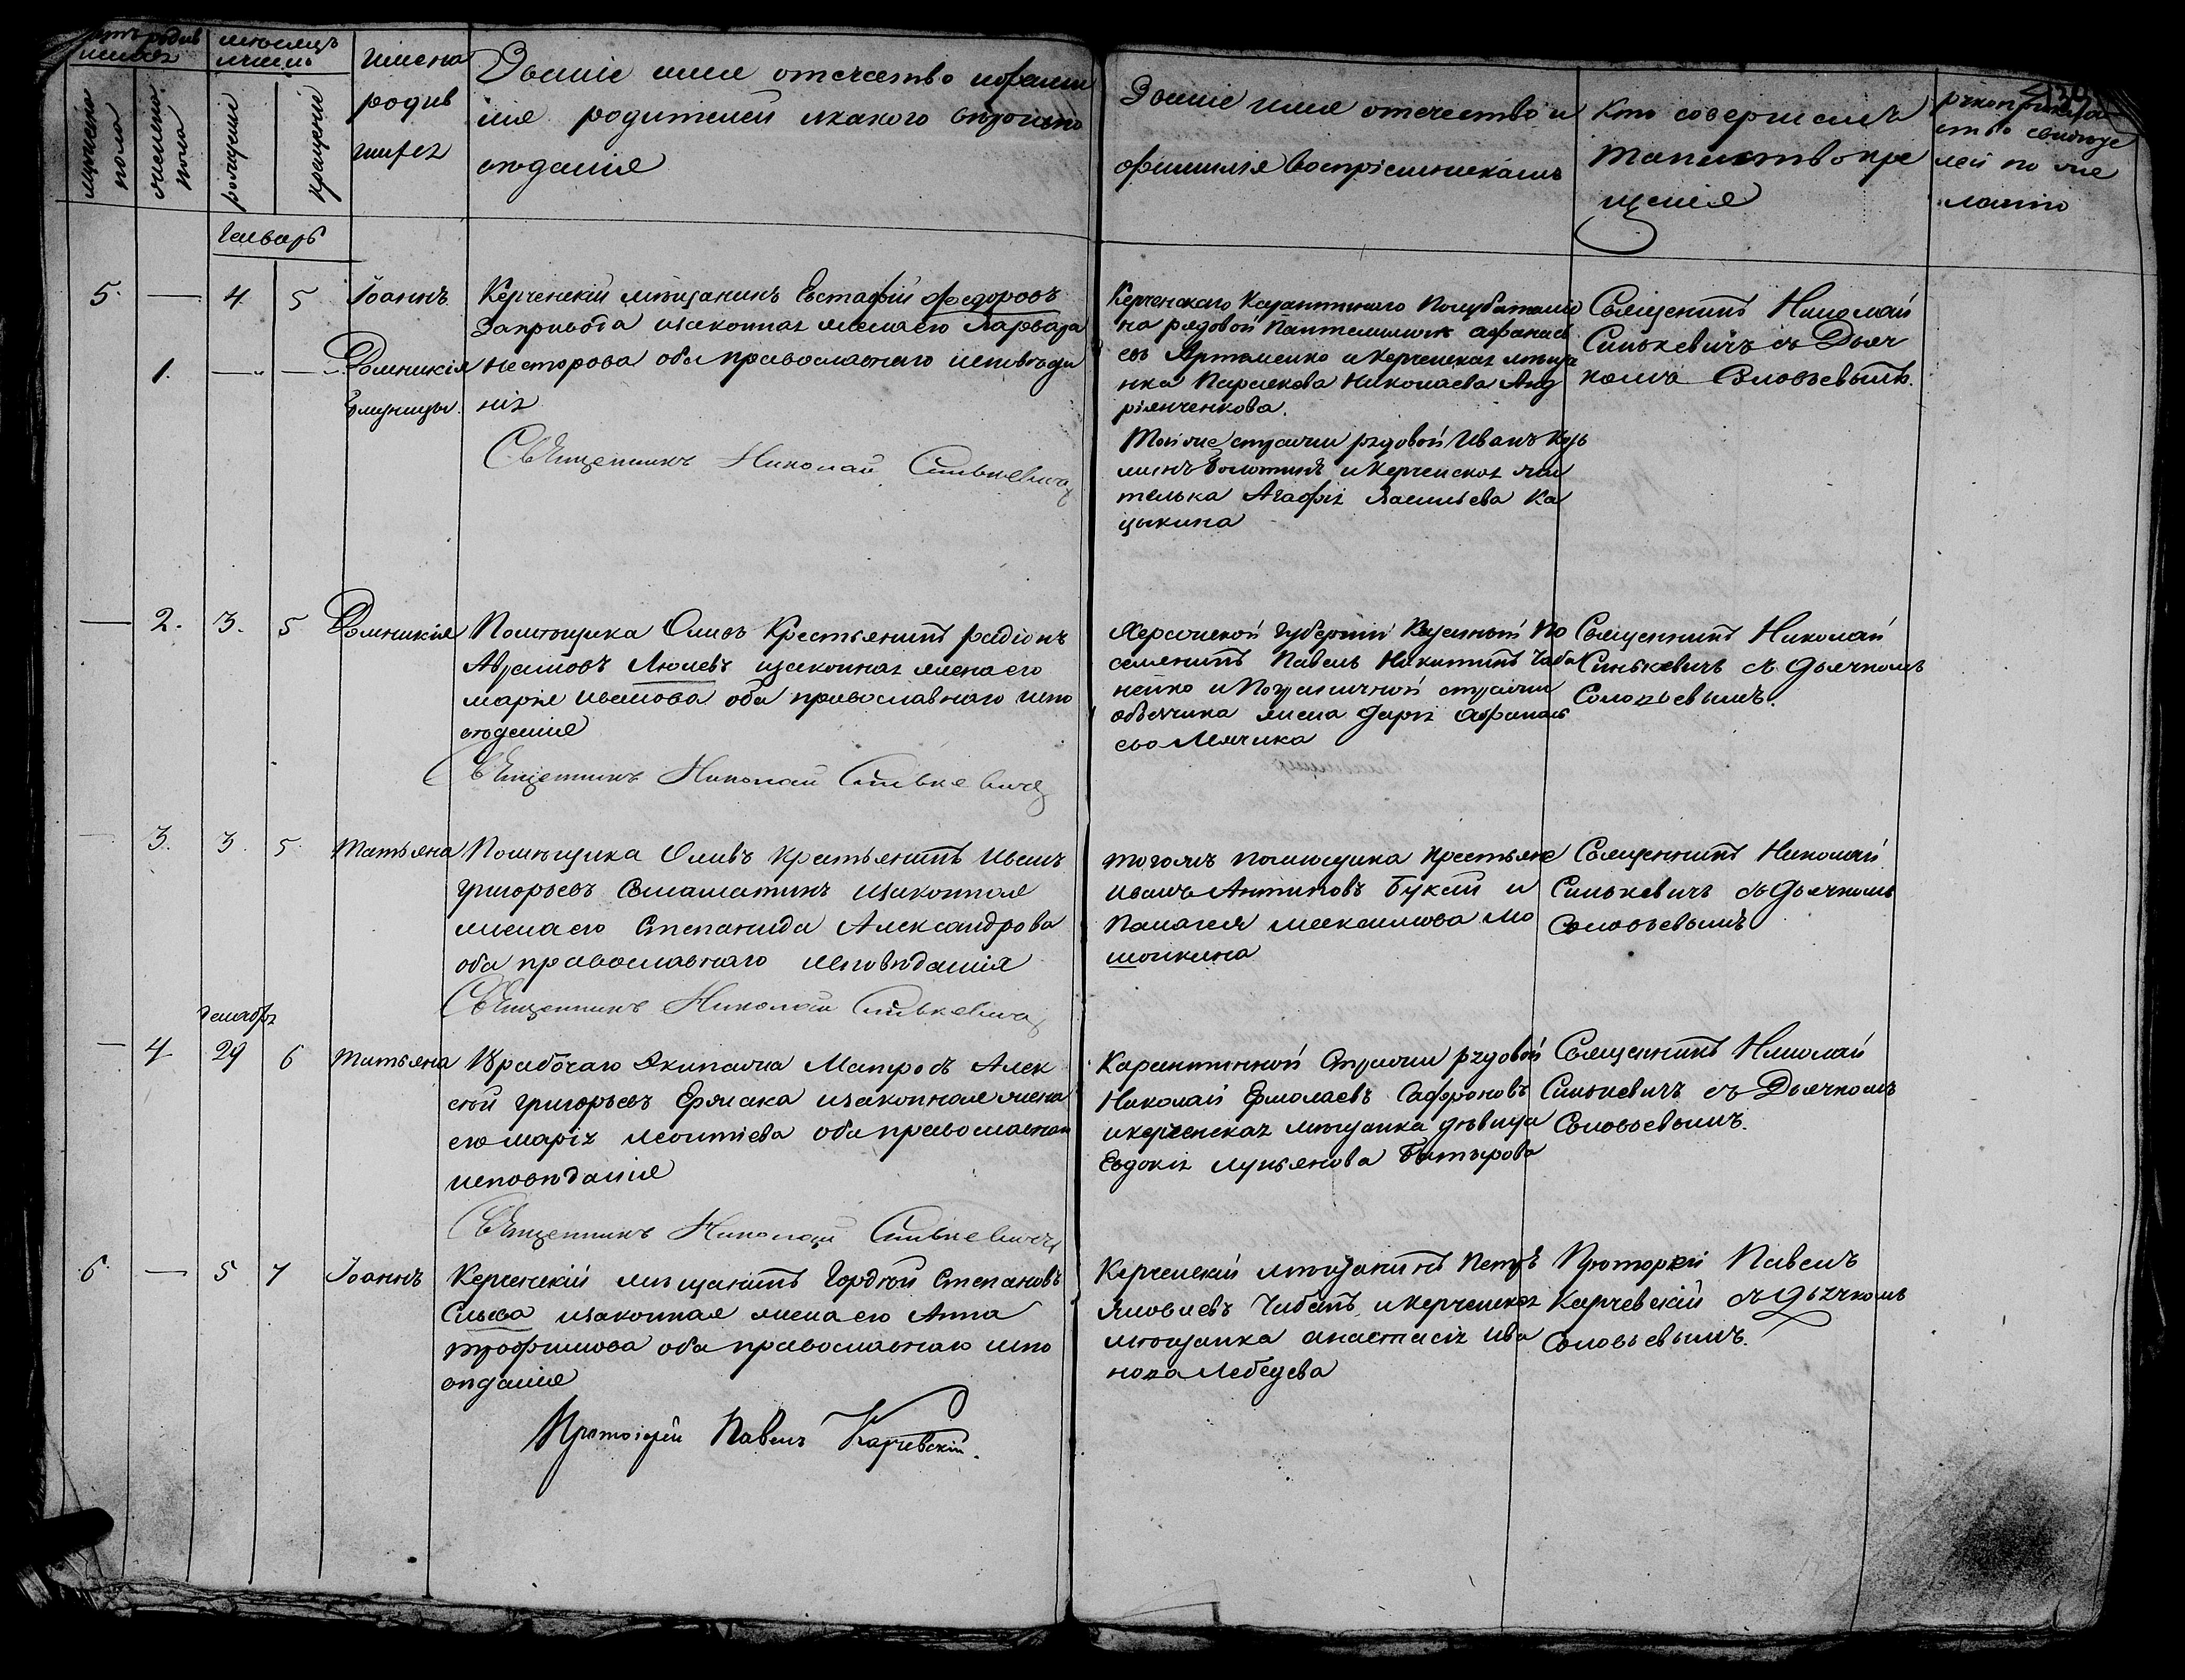 мужеска пола
женска пола
мѣсяцъ
рожденія
крещенія
имена
родив
шихся
Званіе имя отечество ифами
лія родителей икакого вѣроиспо
вѣданія
Званіе имя отечество и
фамилія воспріемниковъ
Кто совершалъ
таинство кре
щенія
рукоприклад
ство свидѣте
лей по же
ланію
Генварь
5. — 4 5 Іоаннъ
1. — — Домникія
близнецы
Керченскій мѣщанинъ Евстафій Федоровъ
Запривода изаконная женаего Варвара
Несторова оба православнаго исповѣда
нія
Священникъ Николай Синькевичъ
Керченскаго Карантиннаго Полубаталіо
на рядовой Пантелимонъ Афанась
евъ Артеменко и керченская мѣща
нка Параскева Николаева Анд
ріянченкова.
Той же стражи рядовой Иванъ Кузь
минъ Болотинъ и керченская жи
телька Агафія Васильева Ка
цыкина
Священникъ Николай
Синькевичъ съ Дьяч
комъ Соловьевымъ.
— 2. 3. 5 Домникія
Помѣщика Оливъ Крестьянинъ радіонъ
Абрамовъ Люлевъ изаконная женаего
марія иванова оба православнаго испо
вѣданія
Священникъ Николай Синькевичъ
Херсонской губерніи Казенный По
селянинъ Павелъ Никитинъ Чаба
ненко и Пограничной стражи
объѣщика жена Дарія Афанась
ева Лемчика
Священникъ Николай
Синькевичъ съ дьячкомъ
Соловьевымъ.
— 3. 3. 5. Татьяна
Помѣщика Оливъ крестьянинъ иванъ
григорьевъ Саламатинъ изаконная
женаего Степанида Александрова
оба православнаго исповѣданія
Священникъ Николай Синькевичъ
тогожъ помѣщика крестьяне
иванъ Антиповъ Букай и
Палагея максимова Мо
шонкина
Священникъ Николай
Синькевичъ съ Дьячкомъ
Соловьевымъ
декабря
— 4 29 6 Татьяна
18 рабочаго Экипажа Матросъ Алек
сѣй григорьевъ Ермака изаконная жена
его марія леонтіева оба православнаго
исповѣданія
Священникъ Николай Синькевичъ
Карантинной Стражи рядовой
Николай Ермолаевъ Сафроновъ
икерченская мѣщанка дѣвица
Евдокія лукьянова Батырова
Священникъ Николай
Синькевичъ съ Дьячкомъ
Соловьевымъ.
6. — 5 7 Іоаннъ
Керченскій мѣщанинъ Гордѣй Степановъ
Сыса изаконная женаего Анна
трофимова оба православнаго испо
вѣданія
Протоіерей Павелъ Карчевскій.
Керченскій мѣщанинъ Петръ
Яковлевъ Чибанъ икерченская
мѣщанка анастасія Ива
нова Лебедева
Протоерей Павелъ
Карчевскій съ дьячкомъ
Соловьевымъ.